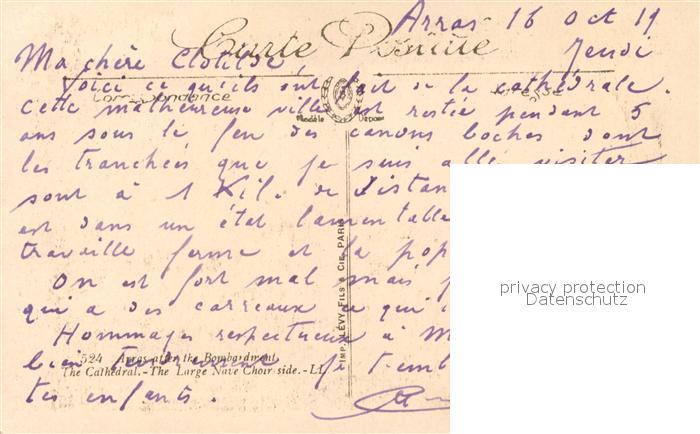 Arras 16 Oct 19
Carte Postale
Jeudi
Ma chère Clotilde
Voici ce qu'ils ont fait de la cathédrale.
Correspondance
Cette malheureuse ville est restée pendant 5
Modèle Déposé
ans sous le feu des canons boches dont
les tranchées que je suis allé visiter
sont à 1 Kil. de distan
est dans un état lamentable
travaille ferme et la pop
On est fort mal mais
qui a des carreaux
Hommages respectueux à M
bien
524 Arras after the Bombardment
The Cathedral.-The Large Nave Choir side.-LL
tes enfants.
IMP. LÉVY FILS & CIE, PARIS
privacy protection
Datenschutz